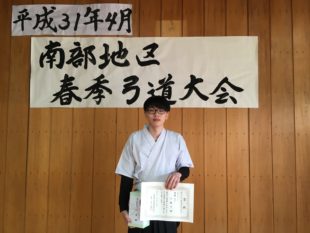 平成31年4月
南部地区
春季弓道大会